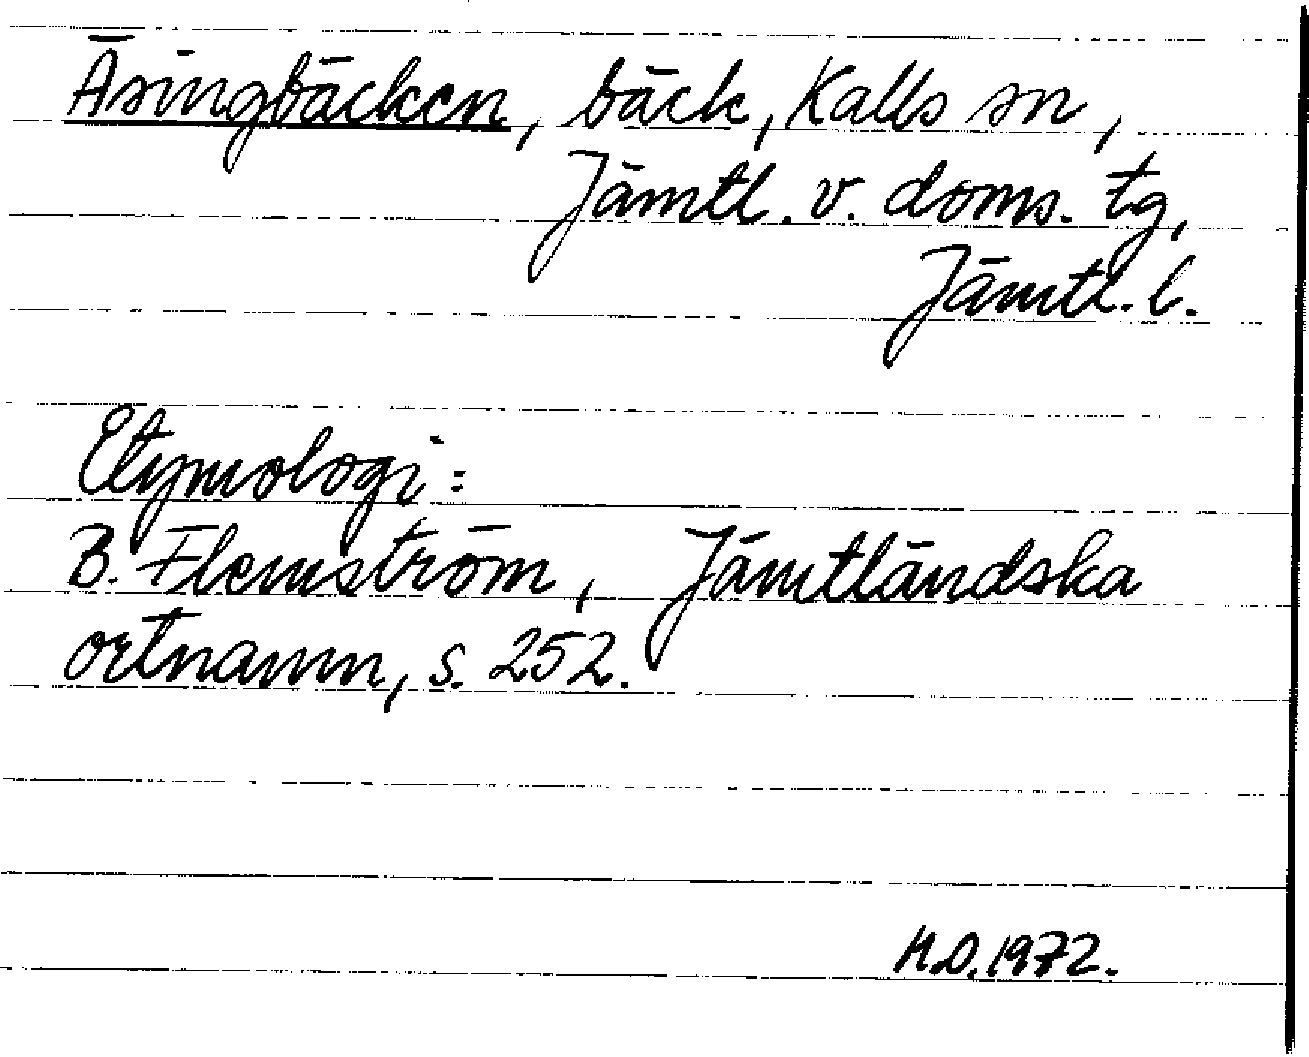 Äsingbäcken, bäck, Kalls sn,
Jämtl. v. doms. tg,
Jämtl. l.
Etymologi:
B. Flemström, Jämtländska
ortnamn, s. 252.
H.D. 1972.